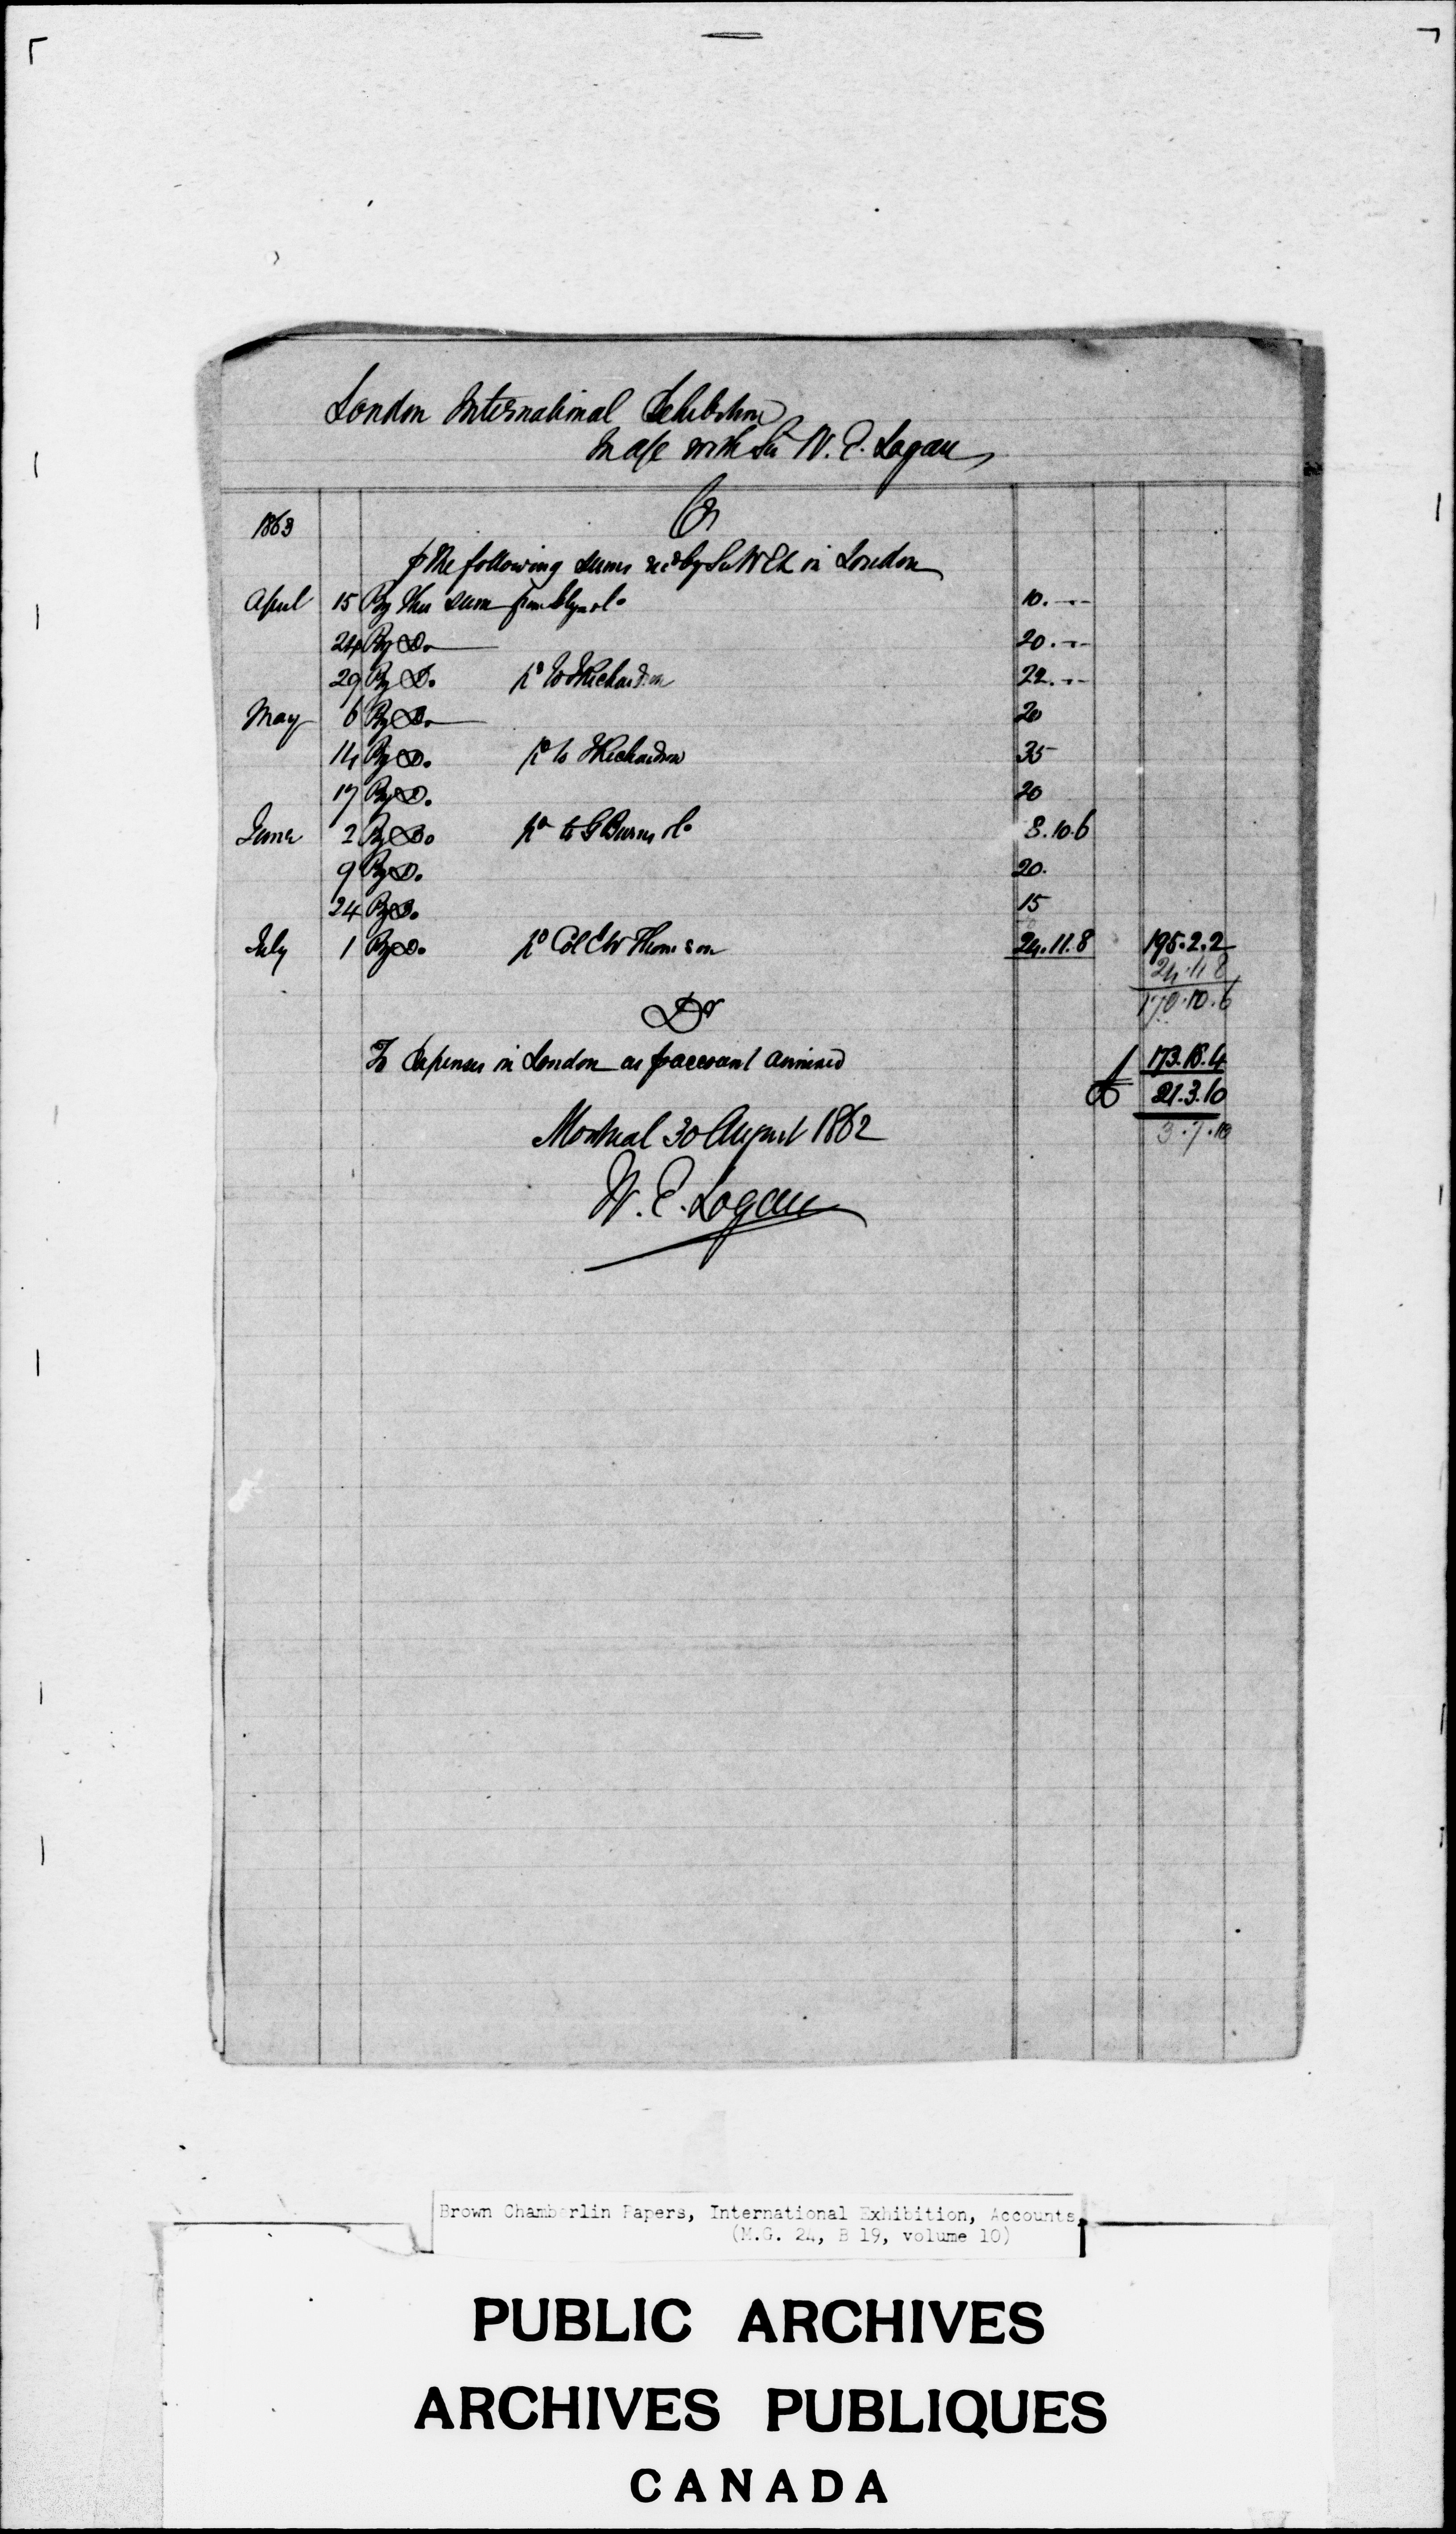 London International Exhibition
In a/c with Sir W. E. Logan
1863
Cr
p the following sums recd by Sir W E L in London
April 15 By this sum from Glyn & Co 10. - -
24 By Do 20. - -
29 By Do pd to J Richardson 22. - -
May 6 By Do 20
14 By Do pd to J Richardson 35
17 By Do 20
June 2 By Do pd to G Burns & Co 8.10.6
9 By Do 20.
24 By Do 15
July 1 By Do pd Col E W Thomson 24.11.8 195.2.2
24.11.8
170.10.6
Dr
To Expenses in London as p account annexed 173.18.4
£ 21.3.10
3.7.10
Montreal 30 August 1862
W. E. Logan
Brown Chamberlin Papers, International Exhibition, Accounts,
(M.G. 24, B 19, volume 10)
PUBLIC ARCHIVES
ARCHIVES PUBLIQUES
CANADA